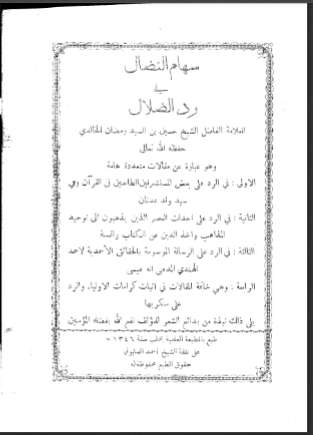 سهام النضال
في
رد الضلال
للعلامة الفاضل الشيخ حسين بن السيد رمضان الخالدي
حفظه الله تعالى
وهو عبارة عن مقالات متعددة هامة
الاولى : في الرد على بعض المستشرقين الطاعنين في القرآن وفي
سيد ولد عدنان
الثانية : في الرد على احداث العصر الذين يذهبون الى توحيد
المذاهب واخذ الدين عن الكتاب والسنة
الثالثة : في الرد على الرسالة الموسومة بالحقائق الأحمدية لاحمد
الهندي المدعي انه عيسى
الرابعة : وهي خاتمة المقالات في اثبات كرامات الاولياء والرد
على منكريها
يلي ذالك نبذة من بدائع الشعر للمؤلف نفع الله بفضله المؤمنين
طبع بالمطبعة العلمية بحلب سنة ١٣٤٦ هـ
على نفقة الشيخ احمد
حقوق الطبع محفوظة له